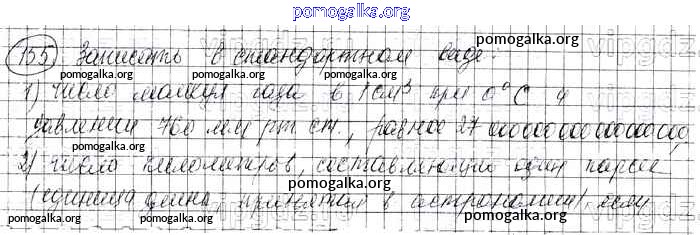 pomogalka.org
155 Записать в стандартном виде:
pomogalka.org pomogalka.org pomogalka.org
1) число молекул газа в 1 см³ при 0°С и
pomogalka.org
давлении 760 мм рт. ст., равное 27 000000000000000000,
pomogalka.org pomogalka.org
2) число километров, составляющих один парсек
pomogalka.org
(единица длины, принятая в астрономии) если
pomogalka.org pomogalka.org pomogalka.org